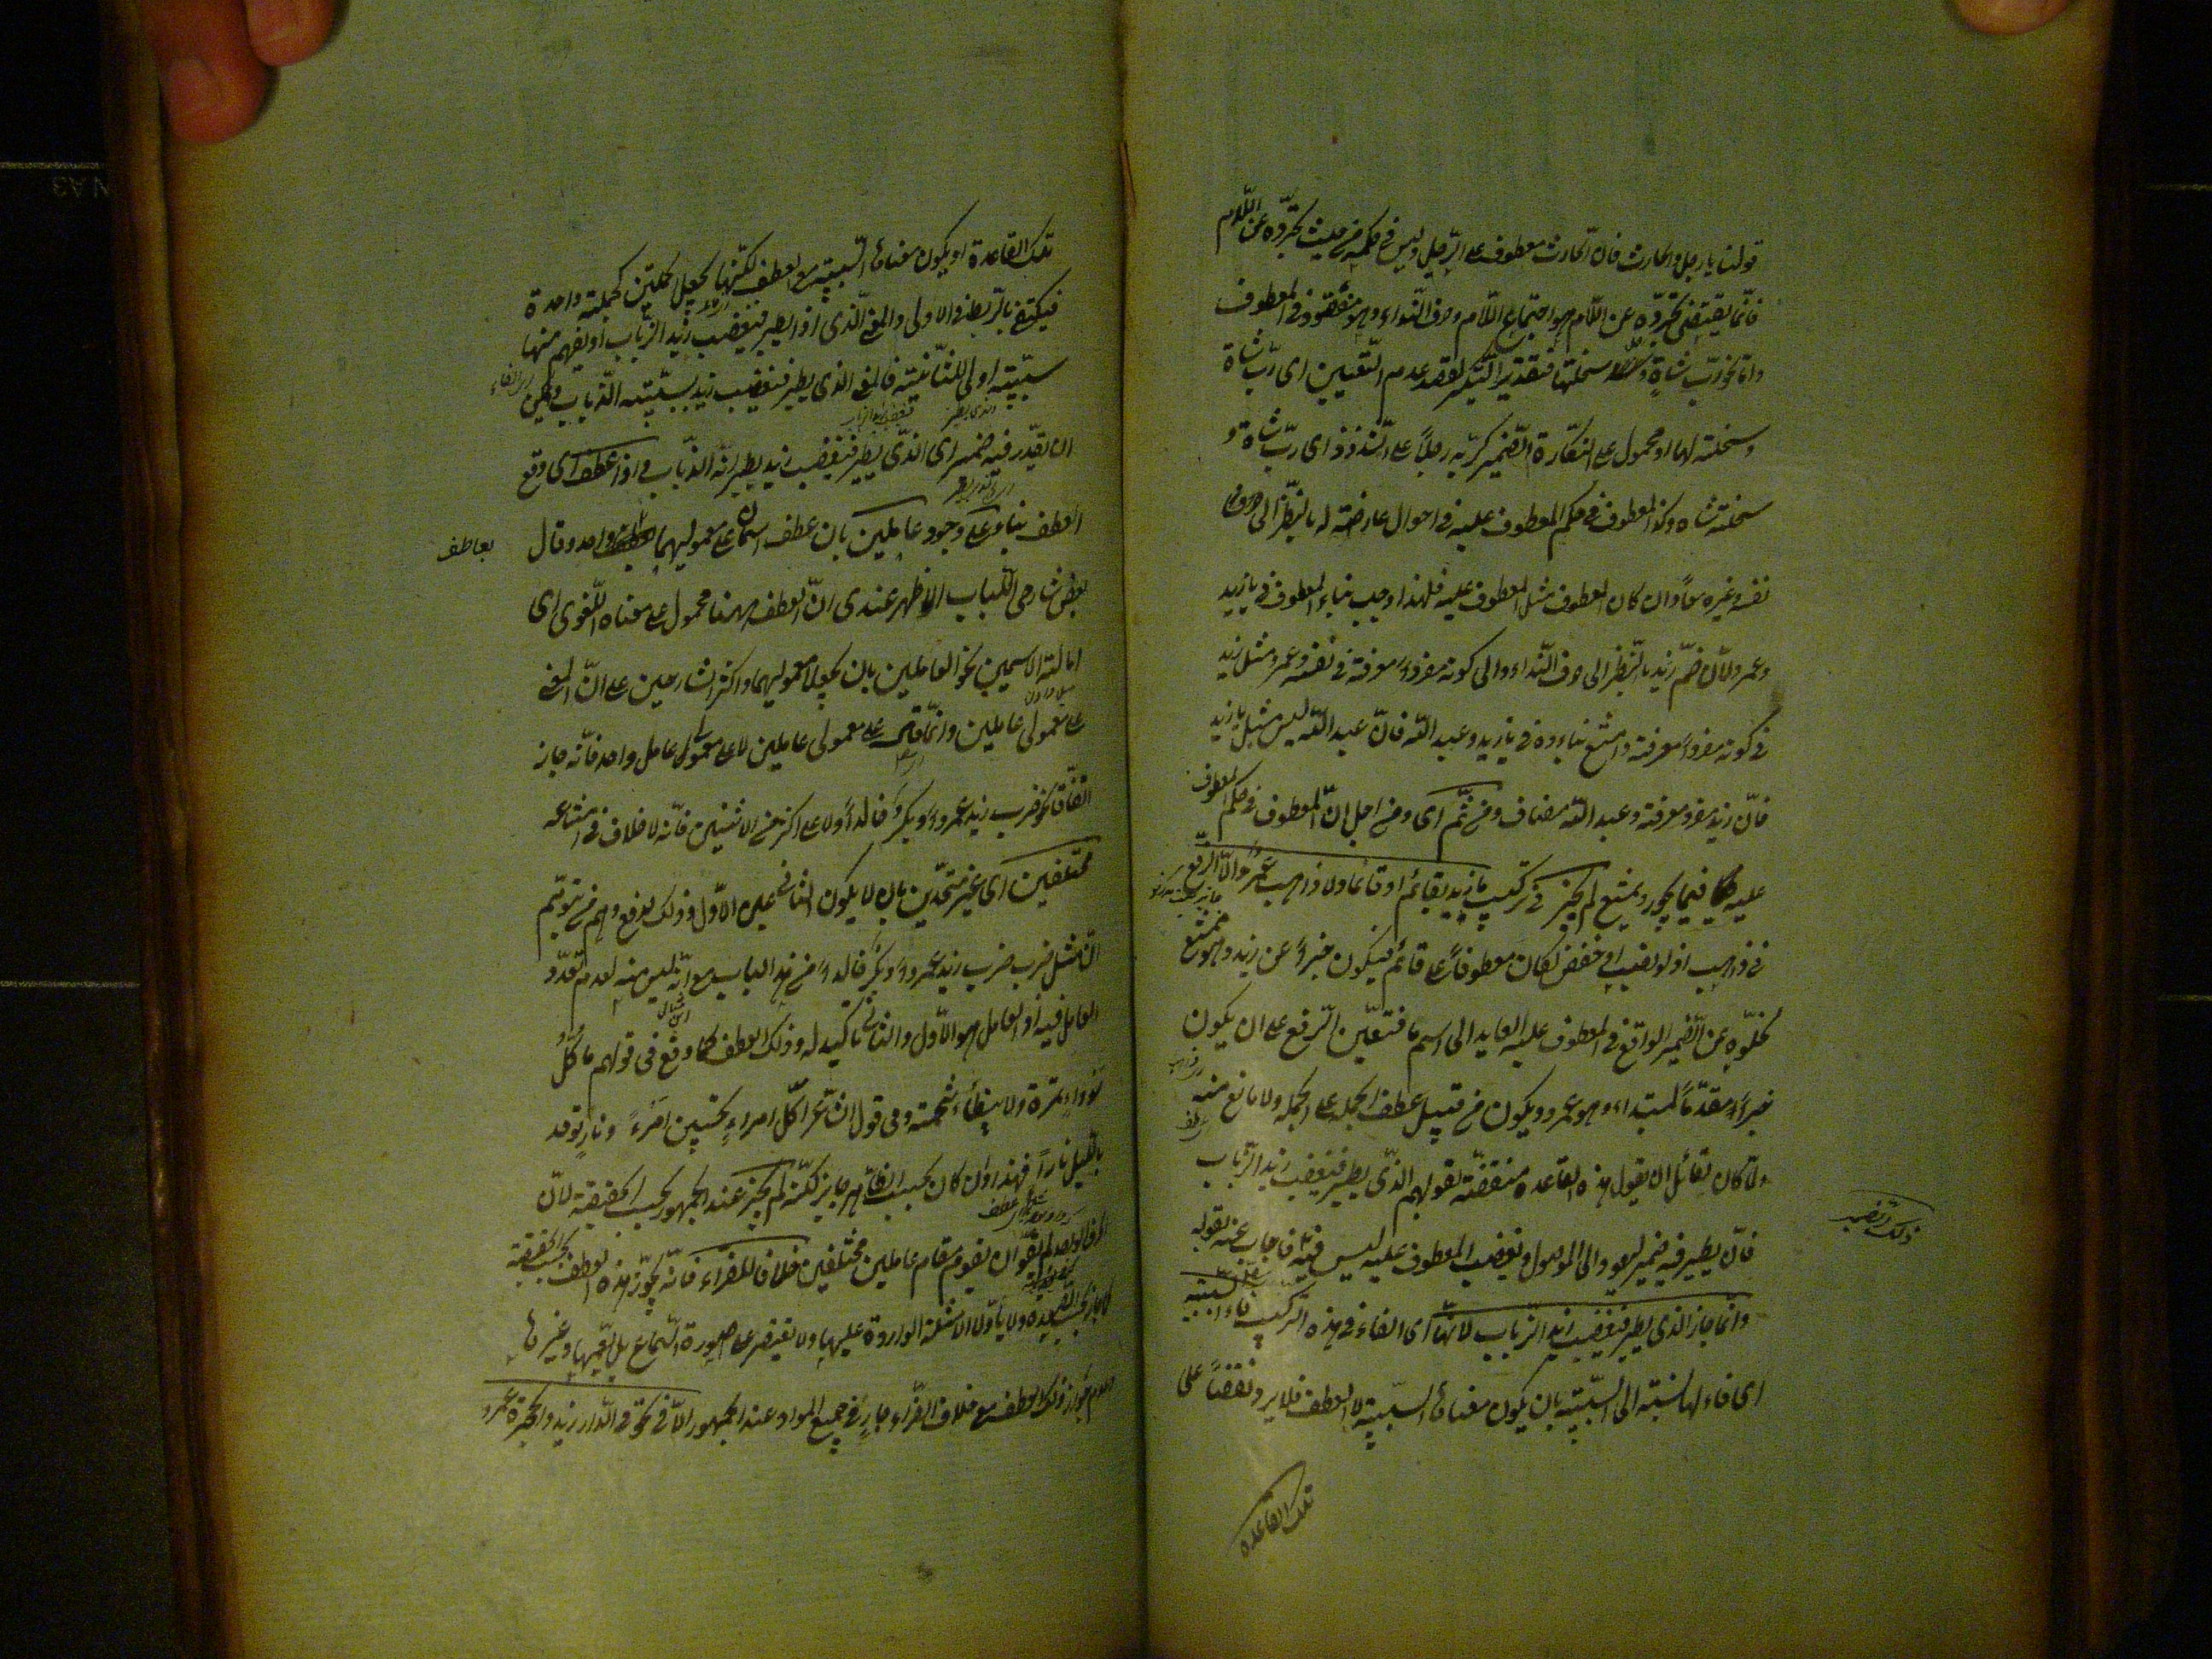 قولنا يا رجل والحارث فان الحارث معطوف على الرجل وليس في حكمه من حيث تجرّده عن اللّام
فانما يقتضى تجرّده عن اللّام هو اجتماع اللّام وحرف النّداء وهو مفقود في المعطوف
وامّا نحو ربّ شاة وسخلتها فبتقدير التنكير لقصد عدم التّعيين اى ربّ شاة
وسخلة لها او محمول على نكارة الضّمير كربّه رجلاً على الشّذوذ اى ربّ شاة و
سخلة شاة وكذا المعطوف في حكم المعطوف عليه في احوال عارضة له بالنّظر الى
نفسه وغيره معاً وان كان المعطوف مثل المعطوف عليه فلهذا وجب بناء المعطوف في يا زيد
وعمرو لانّ ضمّ زيد بالنّظر الى حرف النّداء والى كونه مفرداً معرفة في نفسه وعمرو مثل زيد
في كونه مفرداً معرفة وامتنع بناءه في يا زيد وعبد اللّه فانّ عبد اللّه ليس مثل يا زيد
فانّ زيد مفرد معرفة وعبد اللّه مضاف ومن ثمّ اى ومن اجل انّ المعطوف في حكم المعطوف
عليه فيما يجوز ويمتنع لم يجز في تركيب ما زيد بقائم او قائماً ولا ذاهب عمرو الّا الرّفع
في ذاهب اذ لو نصب او خفض لكان معطوفاً على قائم فيكون خبراً عن زيد وهو ممتنع
لخلوّه عن الضّمير الواقع في المعطوف عليه العايد الى اسم ما فتعيّن الرّفع على ان يكون
خبراً مقدّماً لمبتداء وهو عمرو ويكون من قبيل عطف الجملة على الجملة ولا مانع منه
ولمّا كان لقائل ان يقول هذه القاعدة منتقضة بقولهم الذّى يطير فيغضب زيد الذّباب
فانّ يطير فيه ضمير يعود الى الموصول ويغضب المعطوف عليه ليس فيه فاجاب عنه بقوله
ذلك الضّمير
وانّما جاز الذى يطير فيغضب زيد الذّباب لانّها اى الفاء في هذه التركيب فاء السّببيّة
اى فاء لها نسبة الى السّببيّة بان يكون معناها السّببيّة لا العطف فلا يرد نقضاً على
تلك القاعدة
تلك القاعدة او يكون معناها السّببيّة مع العطف لكنّها تجعل الجملتين كجملة واحدة
فيكتفى بالرّبط في الاولى والمعنى الّذى اذا يطير فيغضب زيد الذّباب او يفهم منها
سببيّة اولى للثّانية فالمعنى الذى يطير فيغضب زيد بسببيّته الذّباب ويمكن
ان يقدّر فيه ضمير اى الذّى يطير فيغضب زيد بطيرانه الذّباب واذا عطف اى وقع
العطف بناء على وجود عاملين بان عطف اسمان على معموليهما بعاطف واحد وقال
بعض شارحى اللّباب الاظهر عندى انّ العطف ههنا محمول على معناه اللّغوى اى
امالة الاسمين نحو العاملين بان يجعلا معموليهما واكثر الشّارحين على انّ المعنى
على معمولى عاملين وانّما قال على معمولى عاملين لا على معمولى عامل واحد فانّه جاز
اتّفاقاً نحو ضرب زيد عمرواً وبكر خالداً ولا على اكثر من الاثنين فانّه لا خلاف في امتناعه
مختلفين اى غير متّحدين بان لا يكون الثانى عين الاوّل وذلك لدفع وهم من توهّم
انّ مثل ضرب ضرب زيد عمرواً وبكر خالداً من هذا الباب مع انّه ليس منه لعدم تعدّد
العامل فيه اذ العامل هو الاوّل والثانى تأكيد له وذلك العطف كما وقع في قولهم ما كلّ
سوداء تمرة ولا بيضاء شحمة وفى قول الشّاعر اكلّ امراء تحسبين امرءً ونار توقد
باللّيل ناراً فهذا وان كان بحسب الظّاهر جايز لكنّه لم يجز عند الجمهور بحسب الحقيقة لانّ
لم يقو ان يقوم مقام عاملين مختلفين خلافاً للفرّاء فانّه يجوّز هذا العطف بحسب الحقيقة
ولا يأوّل الامثلة الواردة عليها ولا يقتصر على صورة السّماع بل يعمّها وغيرها
وعدم جواز ذلك العطف مع خلاف الفرّاء جارٍ في جميع المواد عند الجمهور الّا في نحو في الدّار زيد والحجرة عمرو